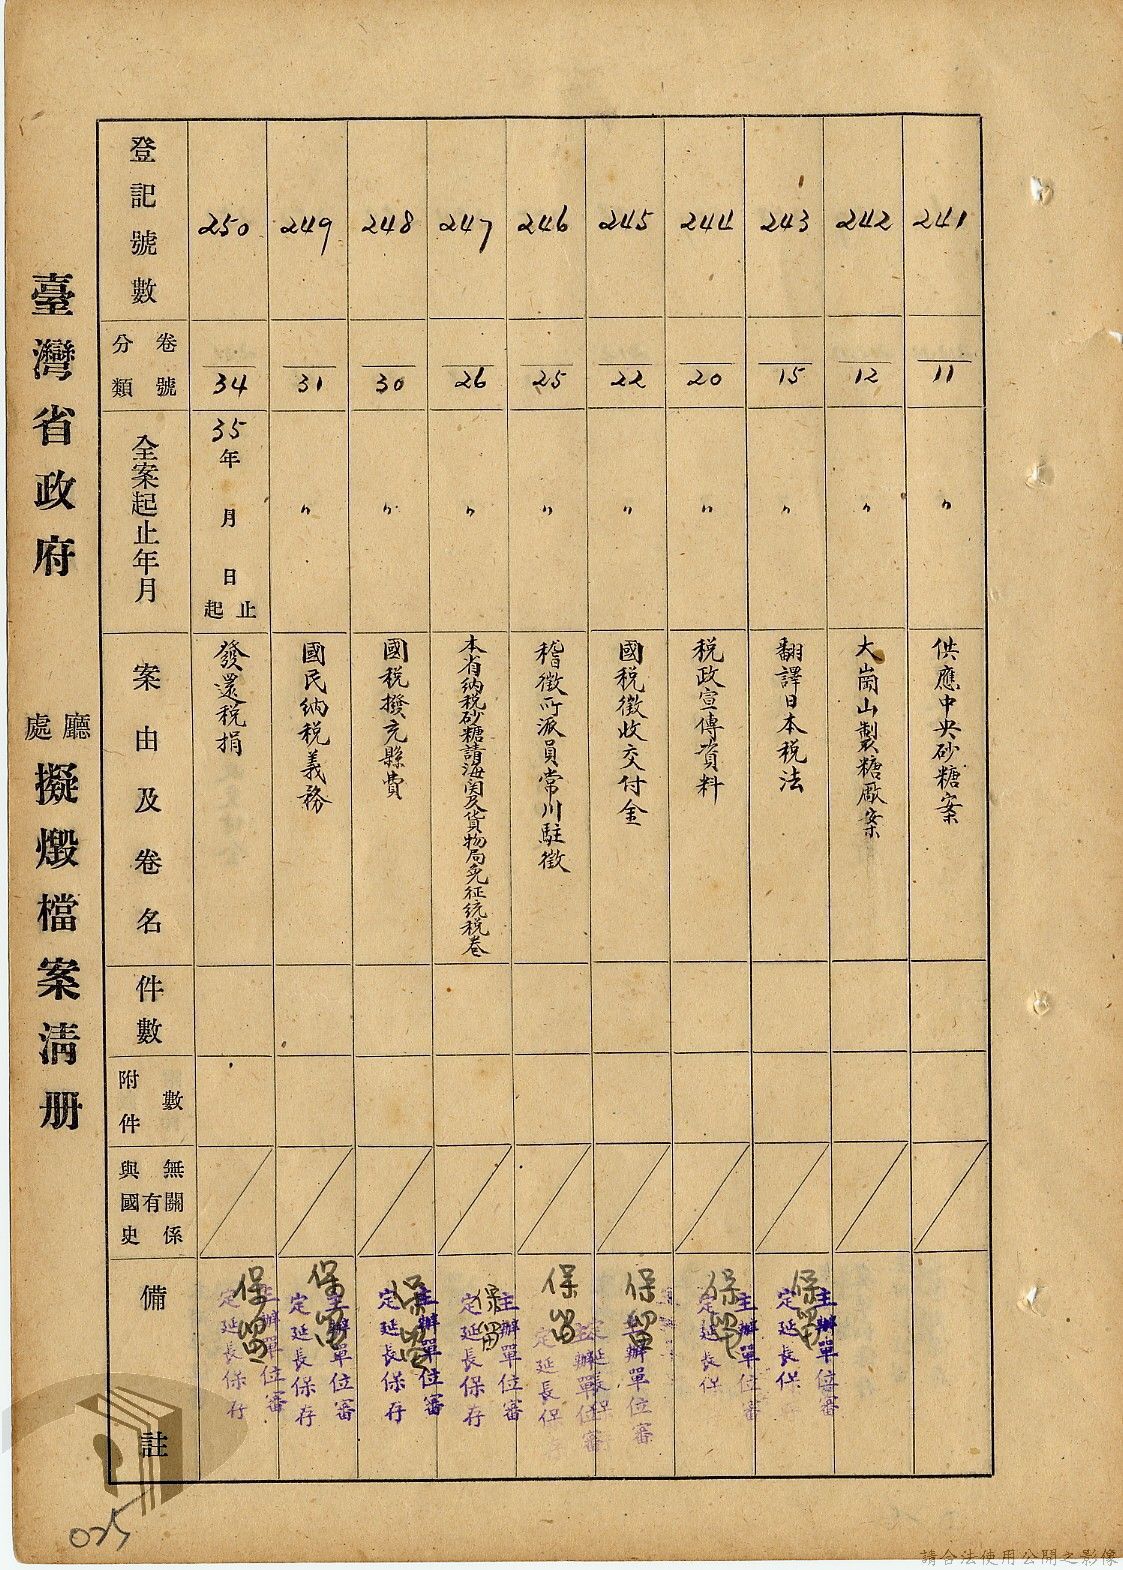 臺灣省政府 廳處 擬燬檔案清册
登記號數
分類 卷號
全案起止年月
案由及卷名
件數
附件數
與國史有無關係
備註
250
34
35年 月 日起止
發還稅捐
保留
主辦單位審定延長保存
249
31
〃
國民納稅義務
保留
主辦單位審定延長保存
248
30
〃
國稅撥充縣費
保留
主辦單位審定延長保存
247
26
〃
本省納稅砂糖請海関及貨物局免征統稅卷
保留
主辦單位審定延長保存
246
25
〃
稽徵所派員常川駐徵
保留
主辦單位審定延長保
245
22
〃
國稅徵收交付金
保留
主辦單位審
244
20
〃
稅政宣傳資料
保留
主辦單位審定延長保
243
15
〃
翻譯日本稅法
保留
主辦單位審定延長保
242
12
〃
大崗山製糖廠案
241
11
〃
供應中央砂糖案
025
請合法使用公開之影像